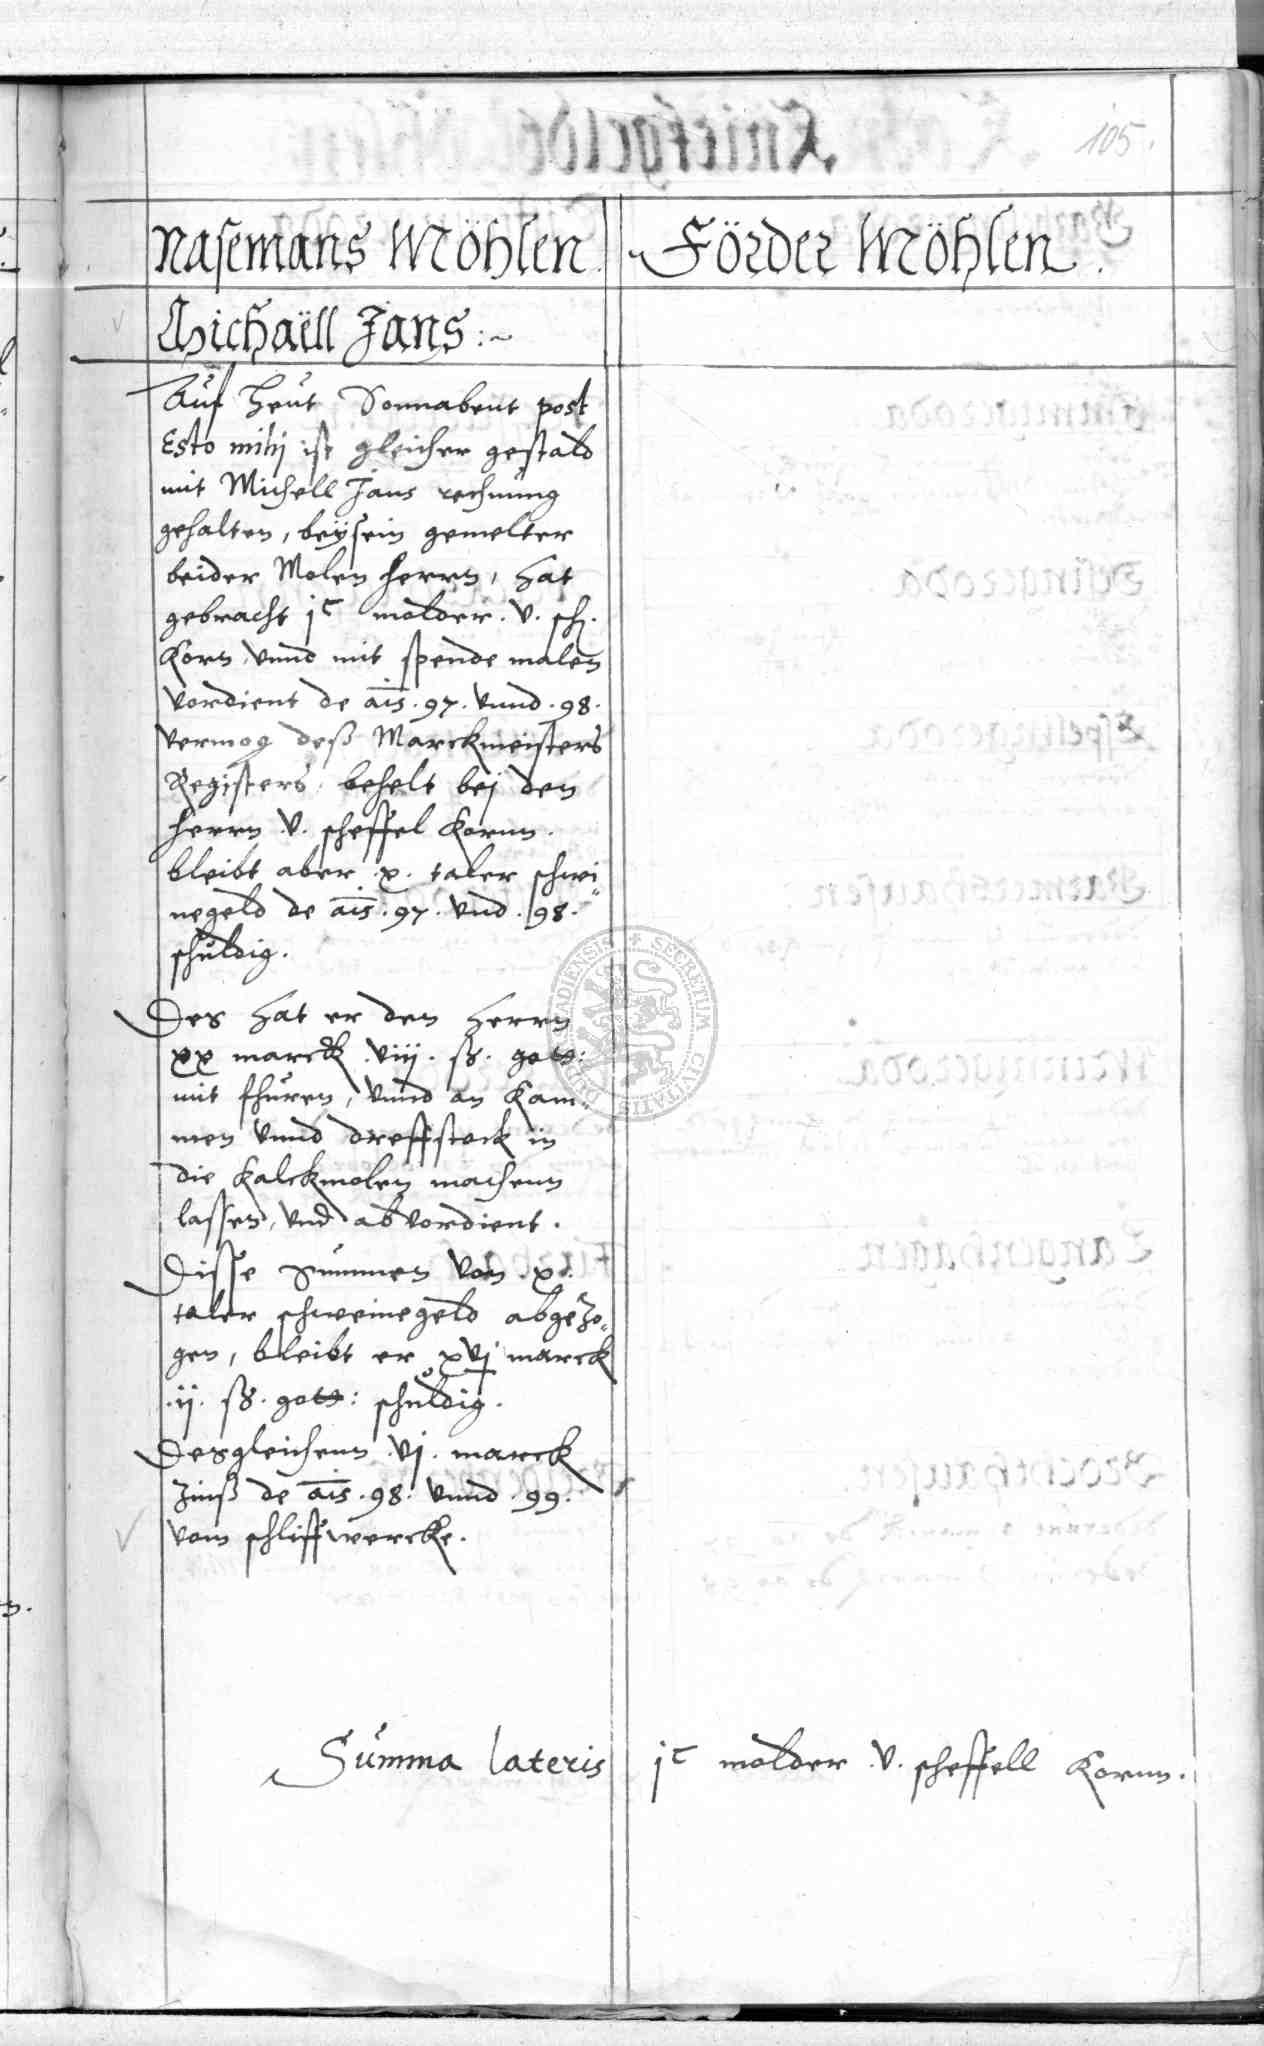 105.
Nasemans Möhlen. Förder Möhlen.
Michaëll Jans:~
Auf heut Sonnabent post
Esto mihj ist gleicher gestald
mit Michell Jans rechnung
gehalten, beÿsein gemelter
beider Molen herrn, hat
gebracht jc molder. v. sch.
Korn vnnd mit spende malen
vordient de ais. 97. vnnd. 98.
vermog deß Marckmeisters
Registers behelt bej den
herrn v. scheffel Kornn.
bleibt aber .x. taler schwi„
negeld de ais. 97. vnd. 98.
schuldig.
Des hat er den herrn
xx marck viij. ß. gott:
mit fhuren, vnnd an Kam„
men vnnd dreffstock in
die Kalckmolen machenn
lassen, vnd abvordient.
Disse Summen von .x.
taler schweinegeld abgezo„
gen, bleibt er xvj marck
.ij. ß. gott: schuldig.
Desgleichenn .vj. marck
Zinß de ais. 98. vnnd. 99.
vom schliffwercke.
Summa lateris jc molder .v. scheffell Kornn.
SECRETUM CIVITATIS DUDERSTADIENSIS